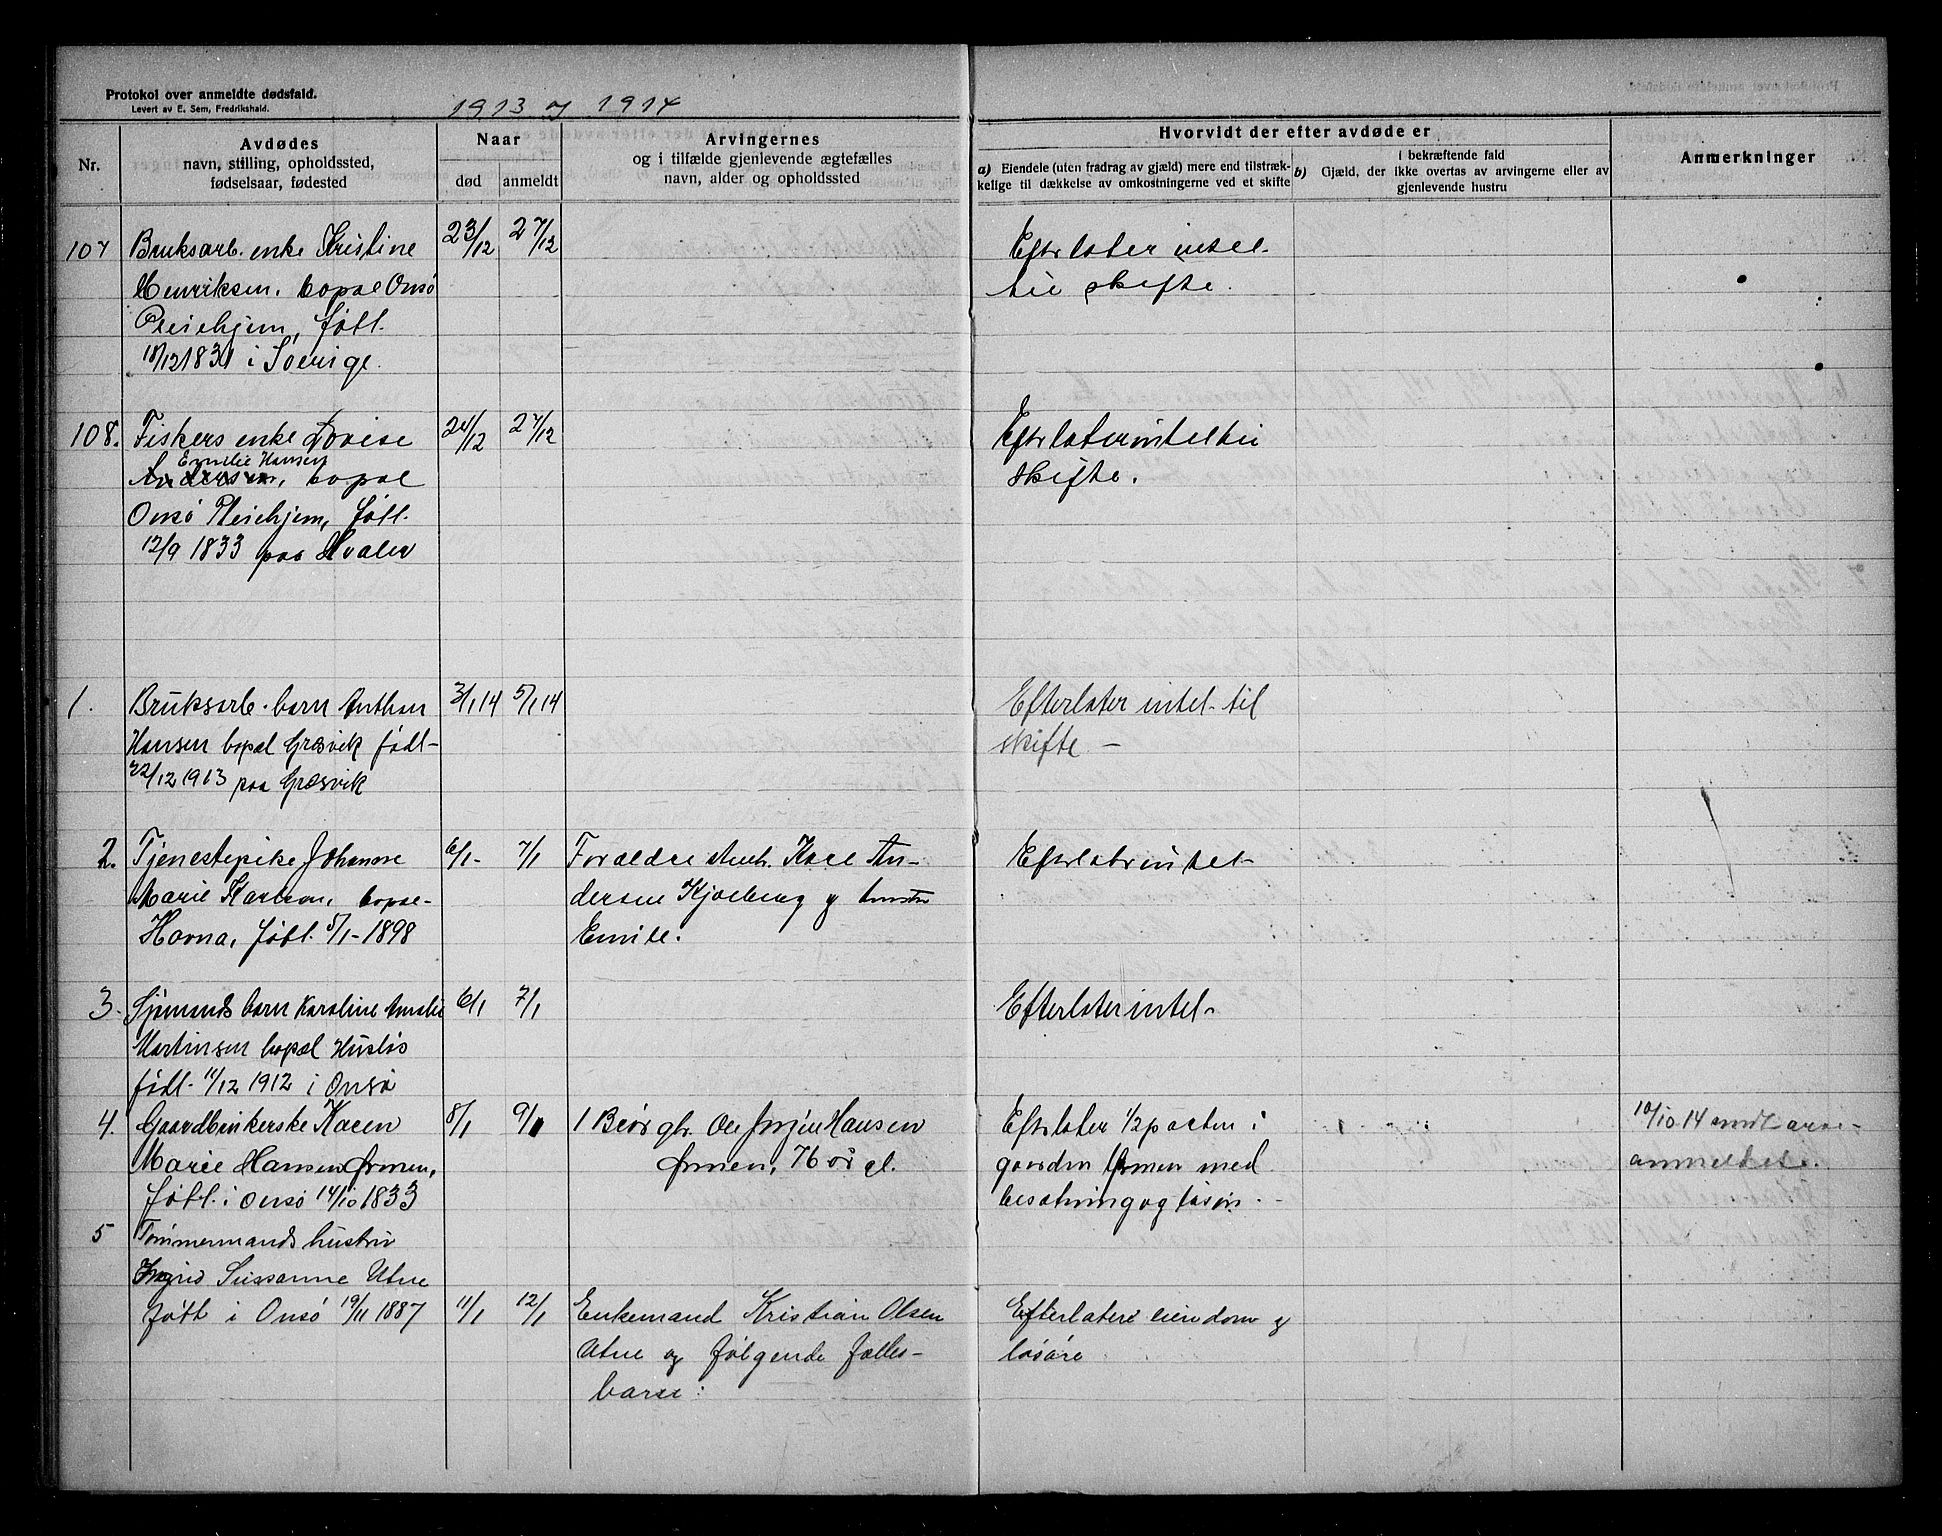 Protokol over anmeldte dødsfald.
Levert av E. Sem, Fredrikshald.
1913 og 1914
Nr.
Avdødes
navn, stilling, opholdssted,
fødselsaar, fødested
Naar
død
anmeldt
Arvingernes
og i tilfælde gjenlevende ægtefælles
navn, alder og opholdssted
Hvorvidt der efter avdøde er
a) Eiendele (uten fradrag av gjæld) mere end tilstræk-
kelige til dækkelse av omkostningerne ved et skifte
b) I bekræftende fald
Gjæld, der ikke overtas av arvingerne eller av
gjenlevende hustru
Anmerkninger
107 Bruksarb. enke Kristine 23/12 27/12 Efterlater intet
Henriksen, bopæl Onsö til skifte.
Pleiehjem, født
18/12 1831 i Sverige.
108. Fiskers enke Lovise 24/12 27/12 Efterlater intet til
Emilie Hansen
Andersen, bopæl skifte.
Onsö Pleiehjem, født
12/9 1833 paa Hvaler
1. Bruksarb. barn Anthon 3/1 14 5/1 14 Efterlater intet til
Hansen bopæl Græsvik født skifte –
22/12 1913 paa Græsvik
2. Tjenestepike Johanne 6/1- 7/1 Forældre Karl An- Efterlater intet
Marie Karlson, bopæl dersen Kjølberg og hustru
Havna, født 5/1-1898 Emilie.
3. Sjømands barn Karoline Amalie 6/1 7/1 Efterlater intet
Martinsen bopæl Husløs
født 11/12 1912 i Onsö
4. Gaardbrukerske Karen 8/1 9/1 1 Bror gbr. Ole Jørgen Hansen Efterlater 1/2 parten i 10/10 14 sendt arve-
Marie Hansen Ørmen, Ørmen, 76 år gl. gaarden Ørmen med anmeldelse.
født i Onsö 14/10 1833 besætning og løsøre. -
5 Tømmermands hustru
Ingrid Sussanne Utne
født i Onsö 19/11 1887 11/1 12/1 Enkemand Kristian Olsen Efterlater eiendom og
Utne og følgende fælles- løsøre
barn: